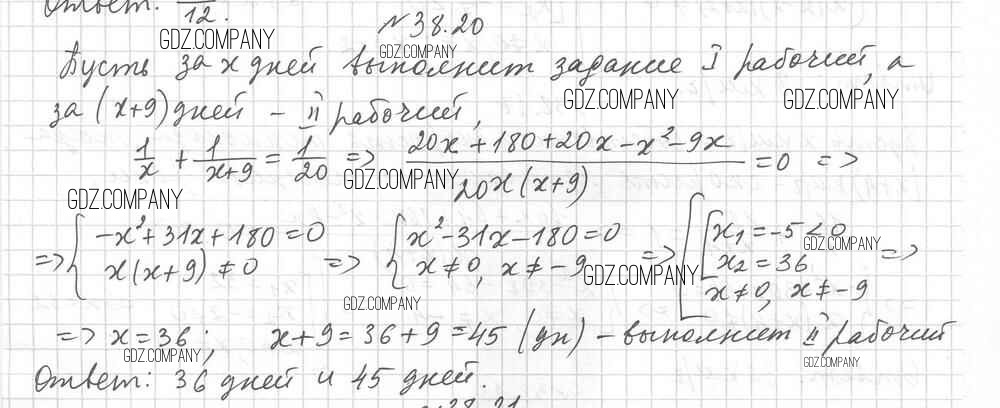 Ответ: /12.
№38.20
GDZ.COMPANY GDZ.COMPANY
Пусть за x дней выполнит задание I рабочий, а
GDZ.COMPANY GDZ.COMPANY
за (x+9) дней – II рабочий,
1/x + 1/(x+9) = 1/20 => (20x+180+20x-x²-9x)/(20x(x+9)) = 0 =>
GDZ.COMPANY GDZ.COMPANY
=> { -x²+31x+180=0 => { x²-31x-180=0 => { [ x₁=-5<0
x(x+9)≠0 x≠0, x≠-9 x₂=36 =>
x≠0, x≠-9
GDZ.COMPANY GDZ.COMPANY GDZ.COMPANY
=> x=36; x+9=36+9=45 (дн) – выполнит II рабочий
GDZ.COMPANY GDZ.COMPANY
Ответ: 36 дней и 45 дней.